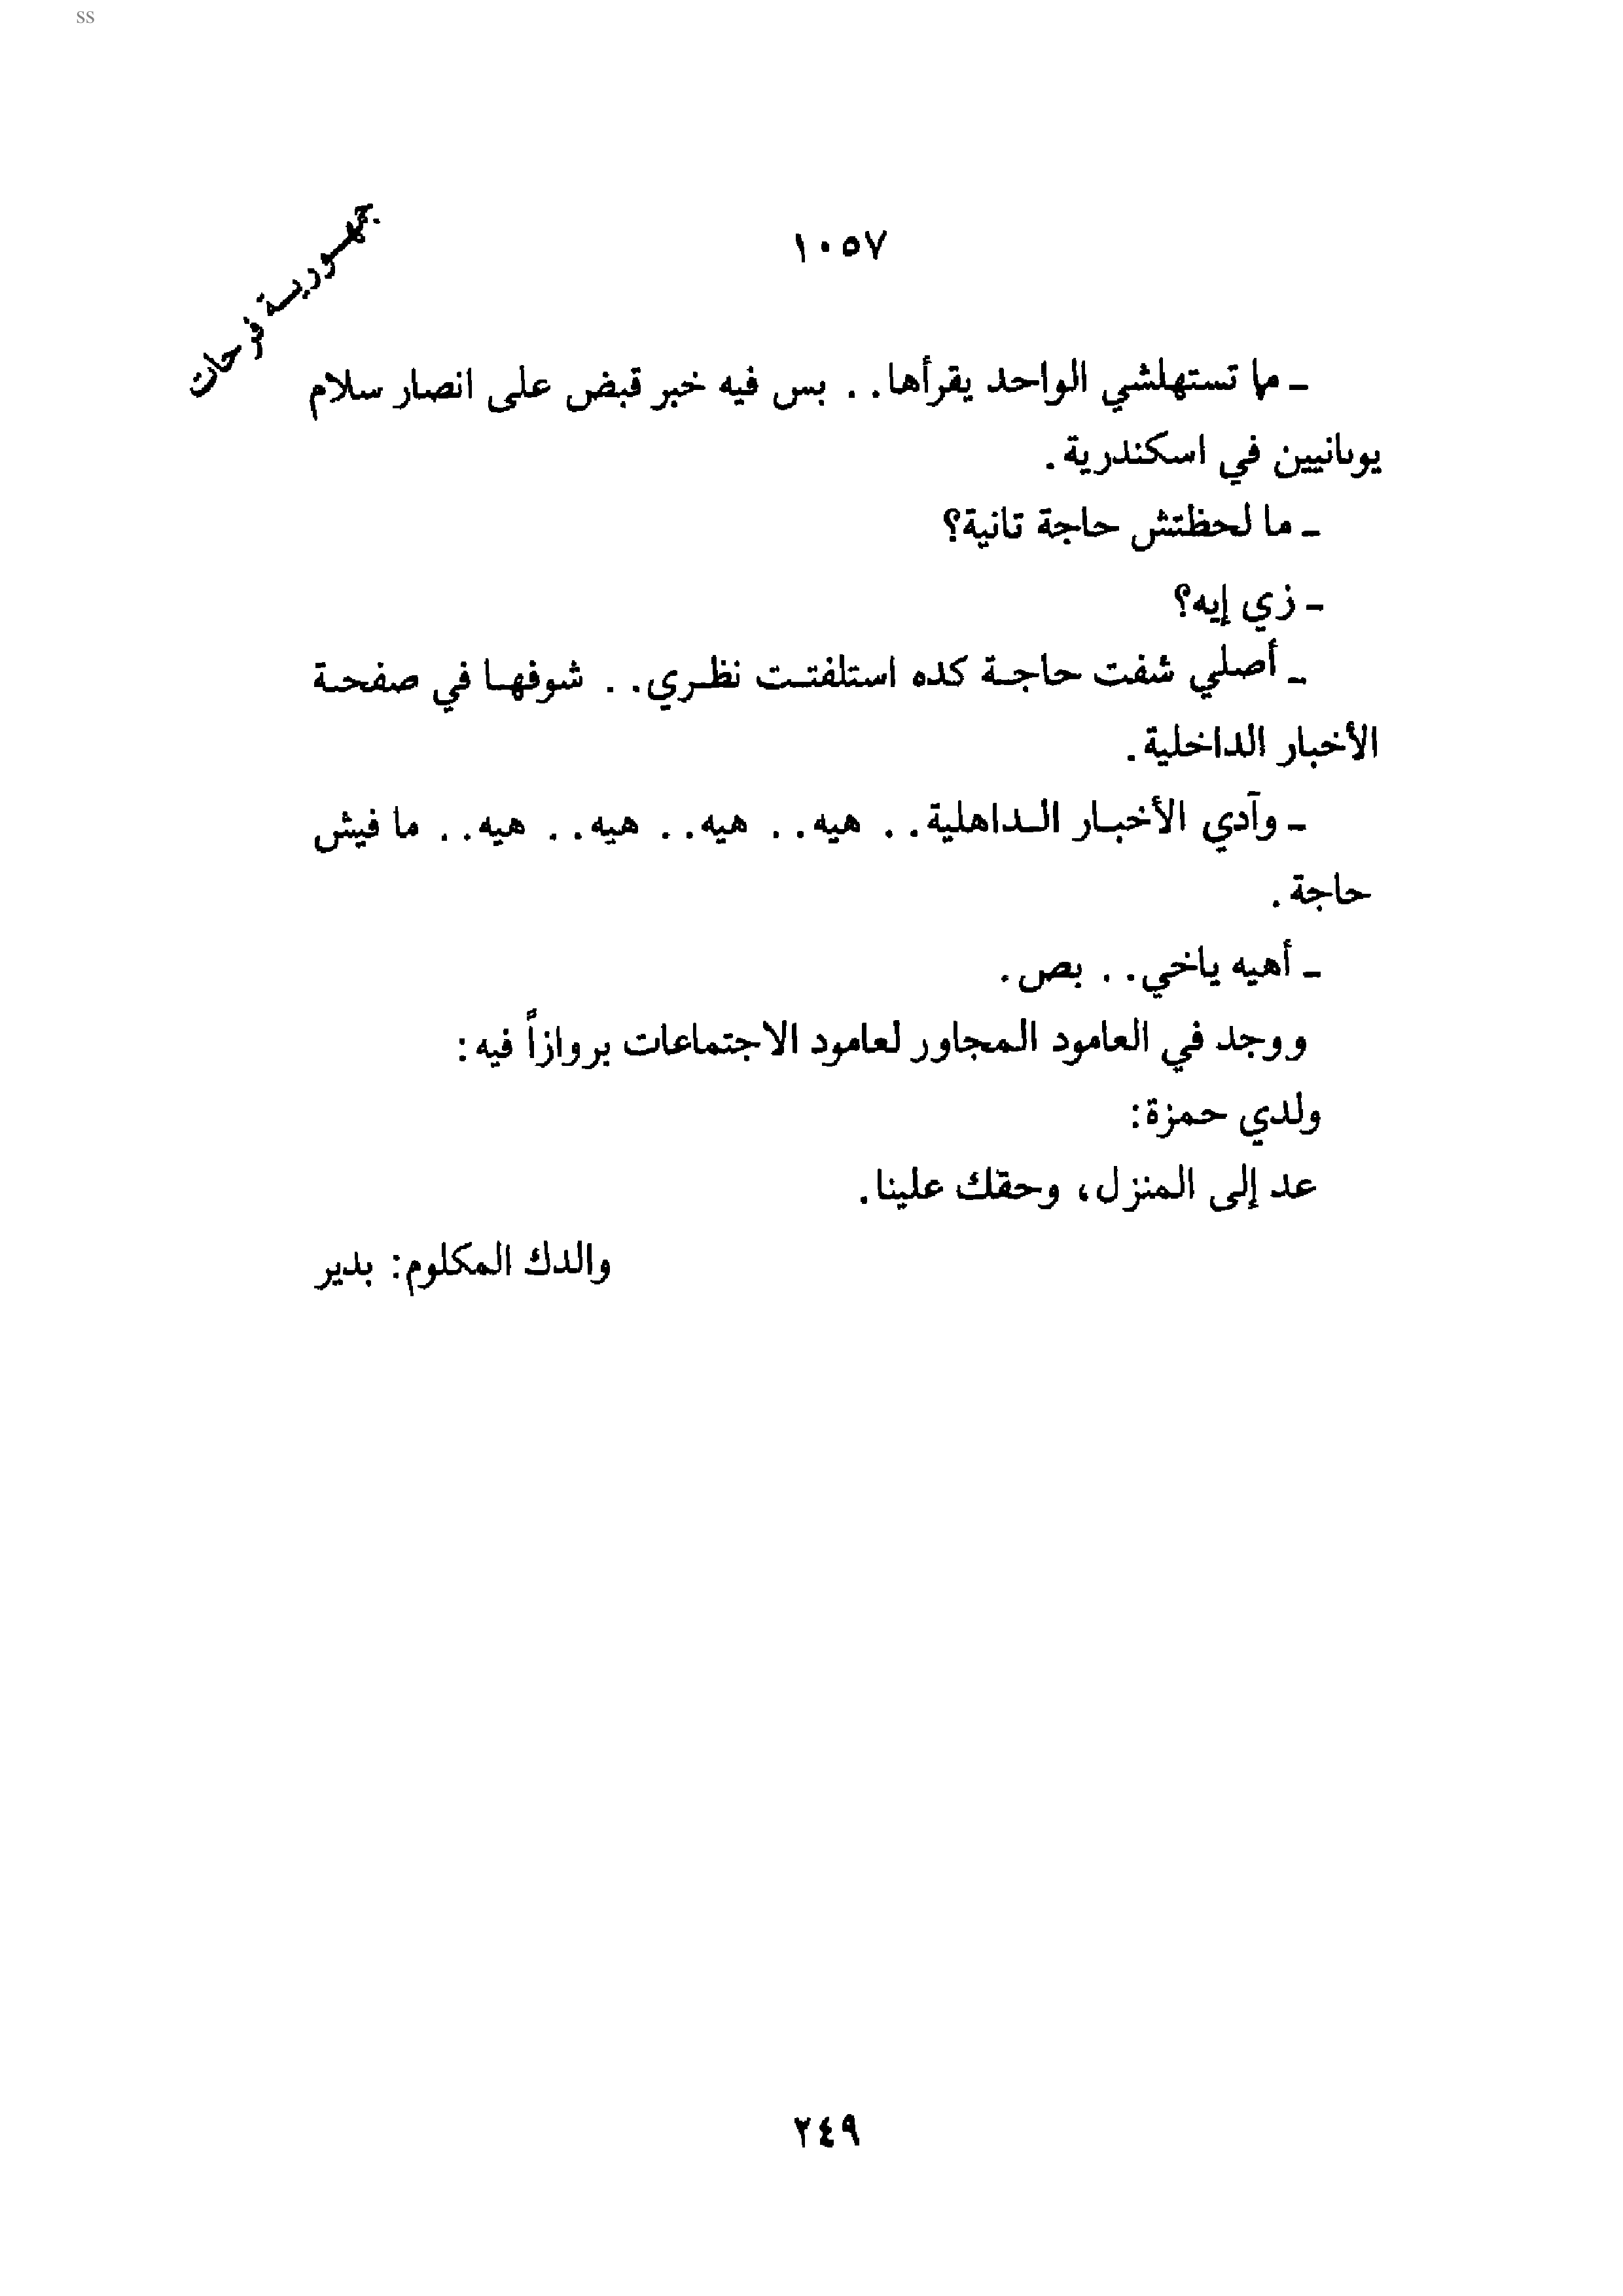 ss
جمهورية فرحات
١٠٥٧
ـ ما تستهلشي الواحد يقرأها . . بس فيه خبر قبض على انصار سلام
يونانيين في اسكندرية .
ـ ما لحظتش حاجة تانية؟
ـ زي إيه؟
ـ أصلي شفت حاجة كده استلفتت نظري . . شوفها في صفحة
الأخبار الداخلية .
ـ وآدي الأخبار الداهلية . . هيه . . هيه . . هيه . . هيه . . ما فيش
حاجة .
ـ أهيه ياخي . . بص .
ووجد في العامود المجاور لعامود الاجتماعات بروازاً فيه :
ولدي حمزة :
عد إلى المنزل، وحقك علينا .
والدك المكلوم : بدير
٢٤٩